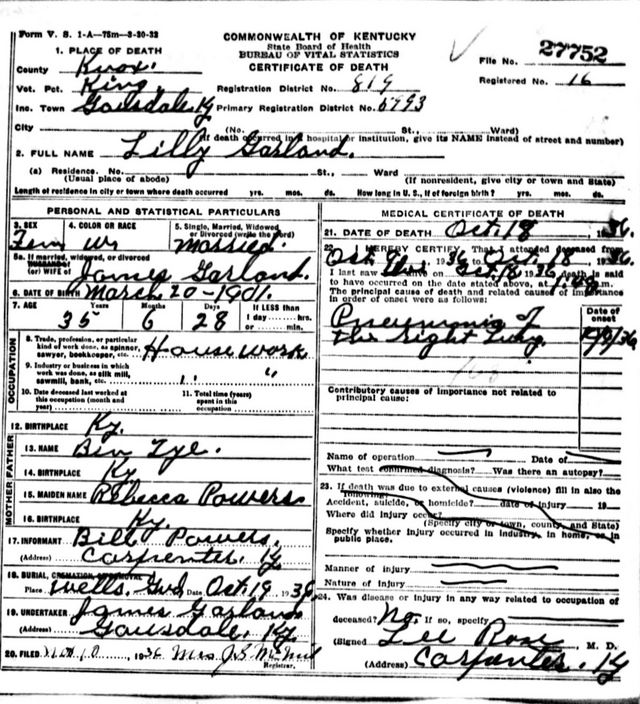 Form V. S. 1-A—75m—3-20-32
COMMONWEALTH OF KENTUCKY
State Board of Health
BUREAU OF VITAL STATISTICS
CERTIFICATE OF DEATH
File No. 27752
Registered No. 16
1. PLACE OF DEATH
County Knox
Vot. Pct. King
Registration District No. 819
Inc. Town Gausdale Ky Primary Registration District No. 6993
City (No. St., Ward)
(If death occurred in a hospital or institution, give its NAME instead of street and number)
2. FULL NAME Lilly Garland.
(a) Residence. No. St., Ward
(Usual place of abode) (If nonresident, give city or town and State)
Length of residence in city or town where death occurred yrs. mos. ds. How long in U. S., if of foreign birth? yrs. mos. ds.
PERSONAL AND STATISTICAL PARTICULARS
3. SEX 4. COLOR OR RACE 5. Single, Married, Widowed or Divorced (write the word)
Fem W Married.
5a. If married, widowed, or divorced
HUSBAND of (or) WIFE of James Garland
6. DATE OF BIRTH March 20-1901.
7. AGE Years Months Days If LESS than 1 day......hrs. or......min.
35 6 28
OCCUPATION
8. Trade, profession, or particular kind of work done, as spinner, sawyer, bookkeeper, etc. House work
9. Industry or business in which work was done, as silk mill, sawmill, bank, etc. " "
10. Date deceased last worked at this occupation (month and year)
11. Total time (years) spent in this occupation
12. BIRTHPLACE Ky.
FATHER
13. NAME Ben Tye.
14. BIRTHPLACE Ky
MOTHER
15. MAIDEN NAME Rebecca Powers
16. BIRTHPLACE Ky.
17. INFORMANT Bill Powers.
(Address) Carpenter. Ky
18. BURIAL, CREMATION OR REMOVAL
Place Wells. Grd Date Oct 19 1936
19. UNDERTAKER James Garland
(Address) Gausdale. Ky
20. FILED 1936 Mrs J.S.
Registrar.
MEDICAL CERTIFICATE OF DEATH
21. DATE OF DEATH Oct. 18 1936.
22. I HEREBY CERTIFY, That I attended deceased from
Oct 9 1936 to Oct 18 1936.
I last saw alive on Oct. 18 1936, death is said
to have occurred on the date stated above, at m.
The principal cause of death and related causes of importance in order of onset were as follows:
Date of onset
Pneumonia of
the right lung
10/9/36
Contributory causes of importance not related to principal cause:
Name of operation Date of
What test confirmed diagnosis? Was there an autopsy?
23. If death was due to external causes (violence) fill in also the following:
Accident, suicide, or homicide? date of injury 19
Where did injury occur?
(Specify city or town, county, and State)
Specify whether injury occurred in industry, in home, or in public place.
Manner of injury
Nature of injury
24. Was disease or injury in any way related to occupation of
deceased? No. If so, specify
(Signed) Lee Rose M. D.
(Address) Carpenter. Ky